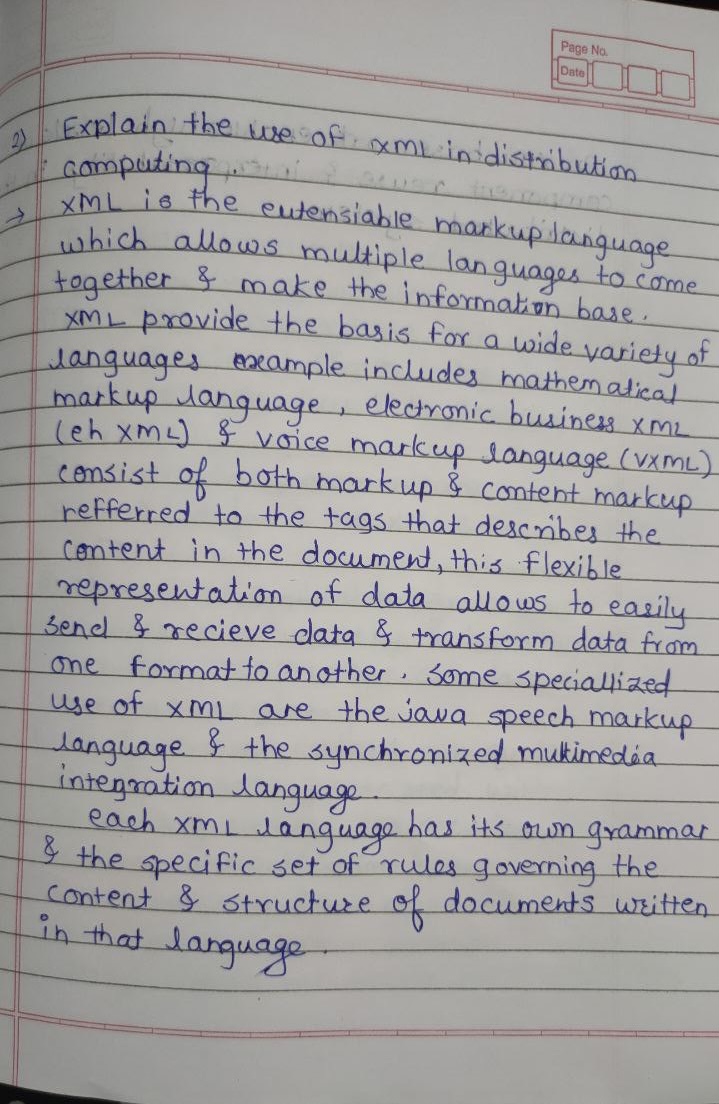 Page No.
Date
2) Explain the use of xml in distribution
computing.
→ XML is the eutensiable markup language
which allows multiple languages to come
together & make the information base.
XML provide the basis for a wide variety of
languages example includes mathematical
markup language, electronic business XML
(eh XML) & voice markup language (VXML)
consist of both markup & content markup
refferred to the tags that describes the
content in the document, this flexible
representation of data allows to easily
send & recieve data & transform data from
one format to another. Some speciallized
use of XML are the java speech markup
language & the synchronized mukimedia
integration language.
each XML language has its own grammar
& the specific set of rules governing the
content & structure of documents written
in that language.